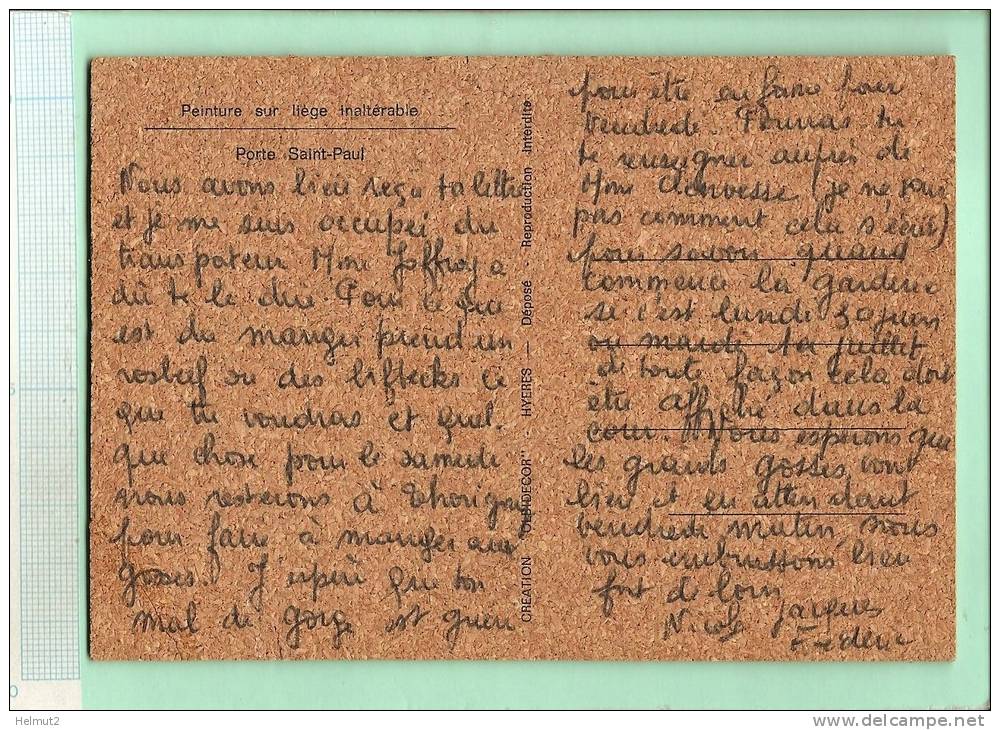 Peinture sur liège inaltérable
Porte Saint-Paul
Nous avons bien reçu ta lettre
et je me suis occupé du
transpateur Mme Joffroy a
dû te le dire Pour ce que
est du manger prend un
rosbif ou des biftecks ce
que tu voudras et quel-
que chose pour le samedi
nous resterons à Thorigné
pour faire à manger aux
gosses. J'espère que ton
mal de gorge est guéri
CREATION - HYERES - Déposé - Reproduction Interdite
pour être en forme pour
Vendredi. Pourras tu
te renseigner auprès de
Mme (je ne sais
pas comment cela s'écrit)
pour savoir quand
commence la garderie
si c'est lundi 30 juin
ou mardi 1er juillet
de toute façon cela doit
être affiché dans la
cour. Nous espérons que
les grands gosses vont
bien et en attendant
vendredi matin nous
vous embrassons bien
fort de loin
Nicole Jacques
Frédéric
Helmut2
www.delcampe.net